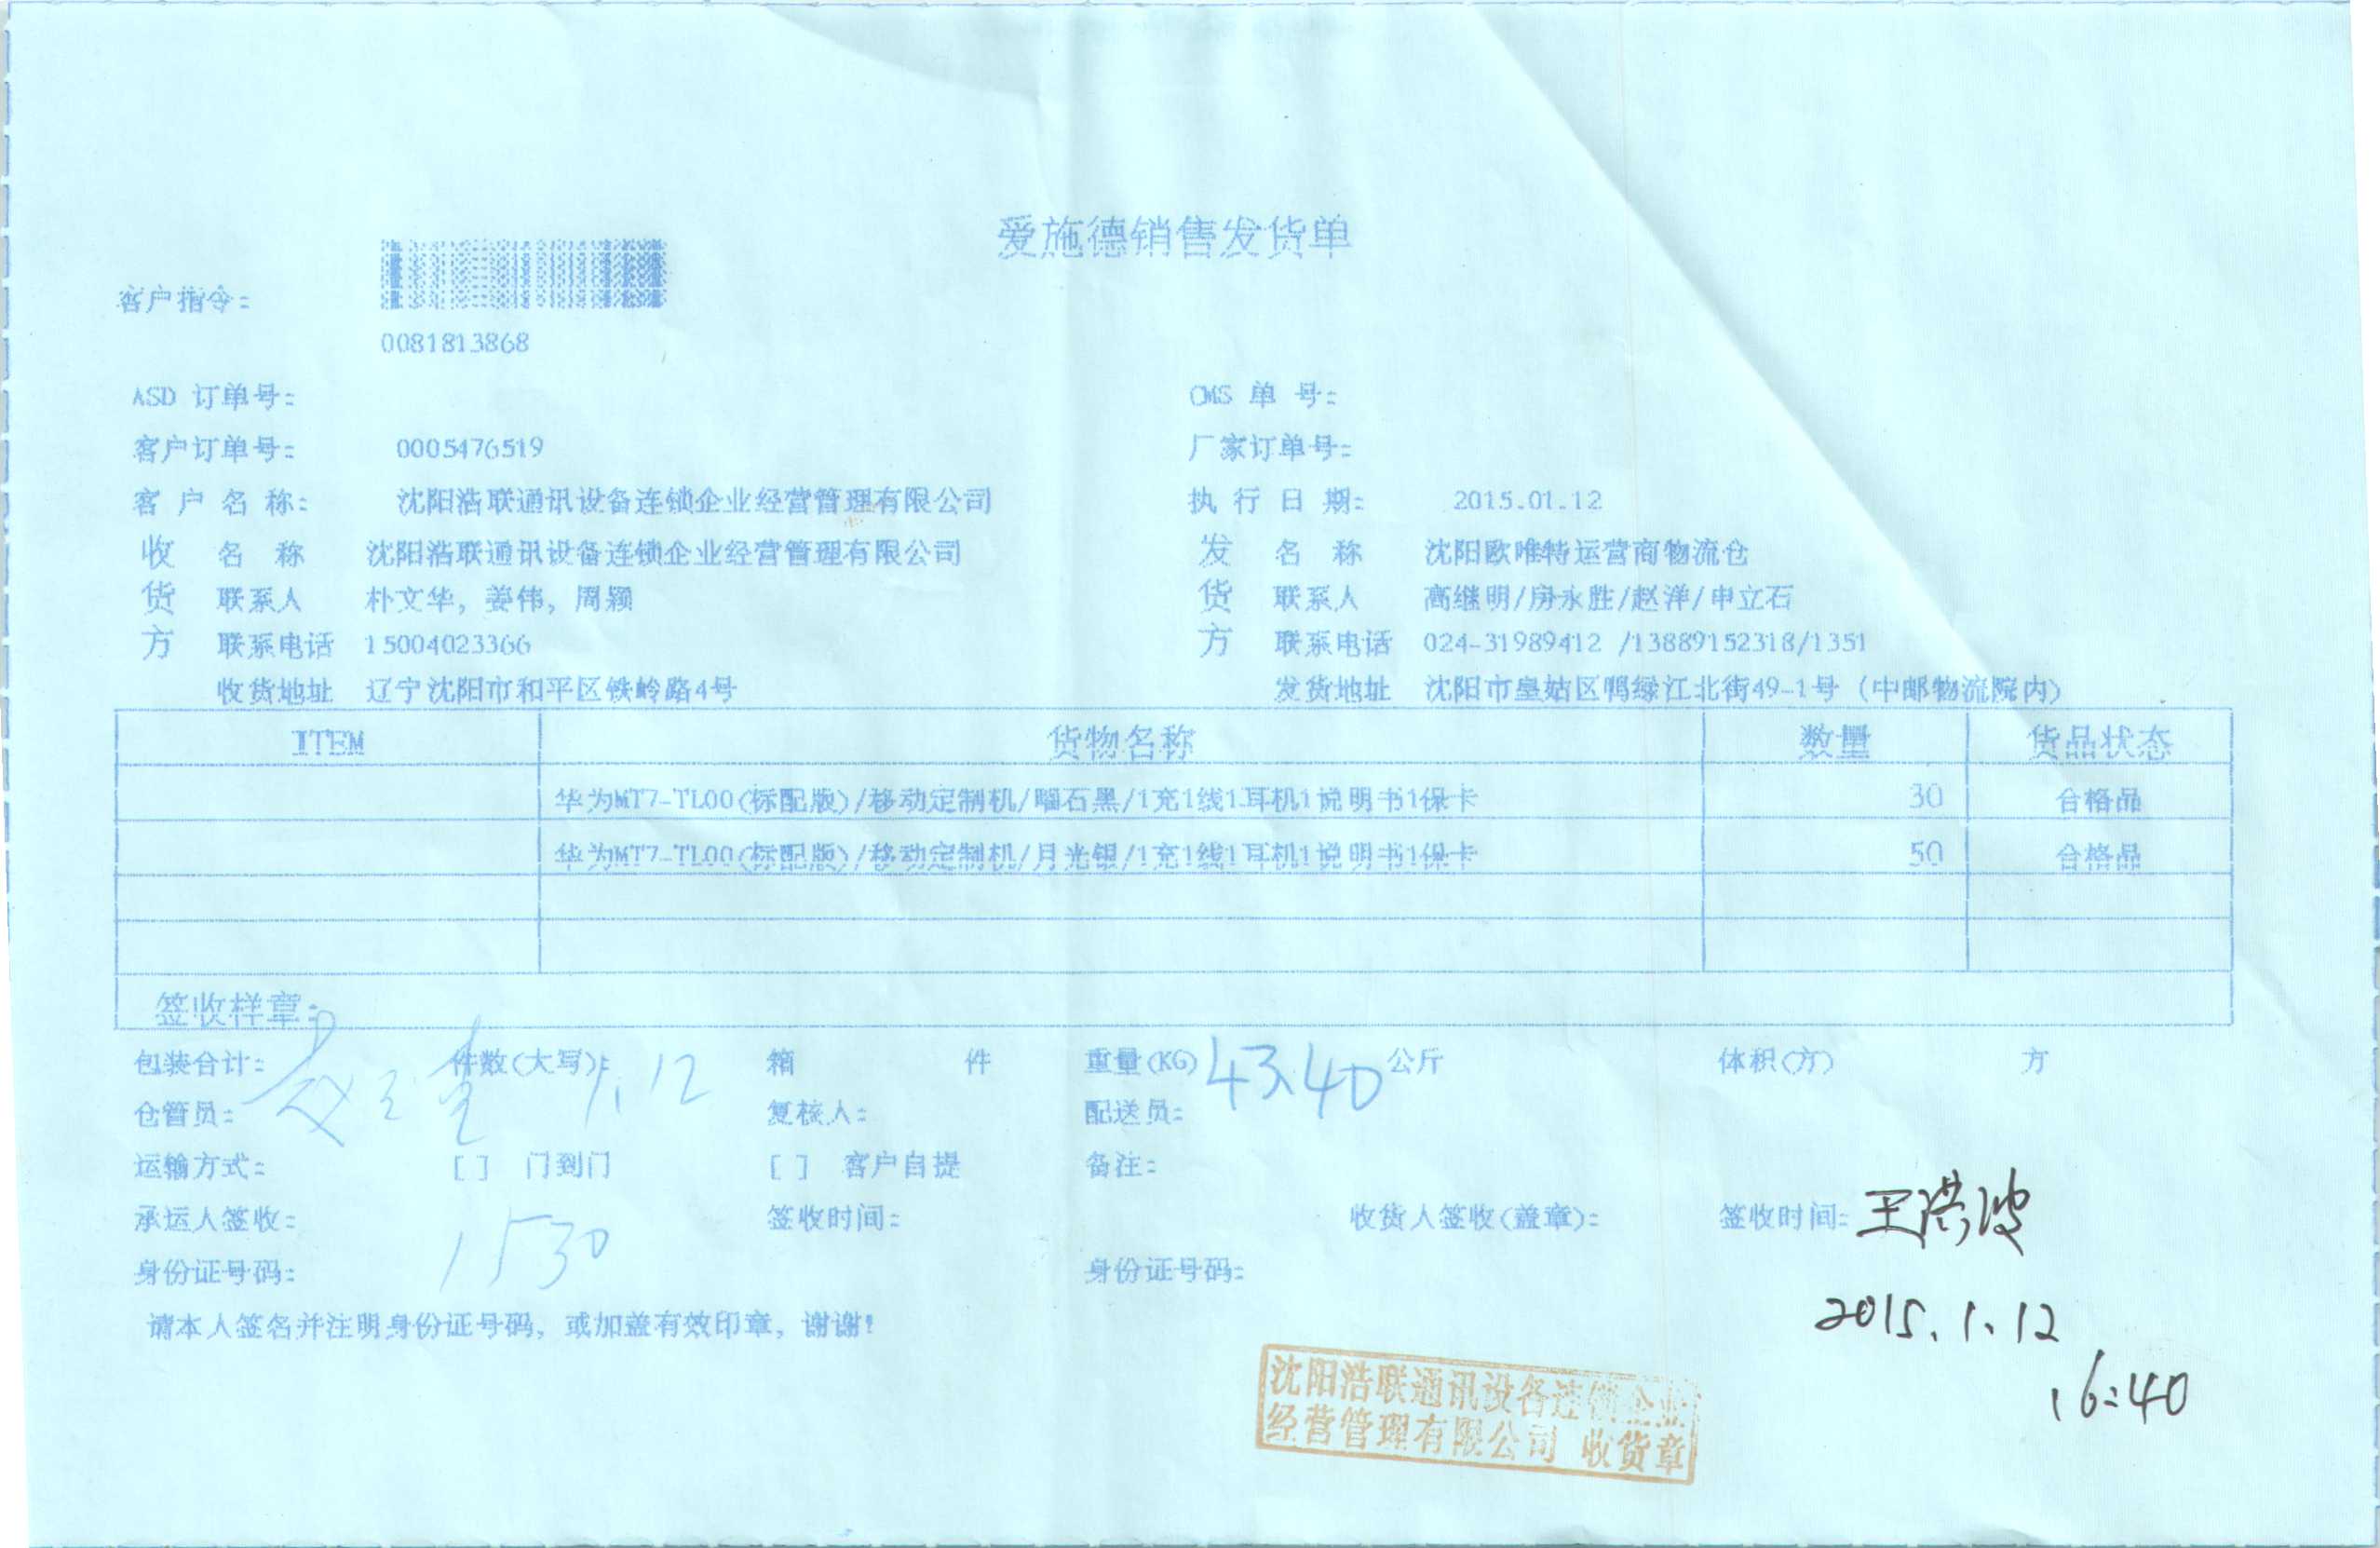 爱施德销售发货单
客户指令:
0081813868
ASD 订单号: OMS 单 号:
客户订单号: 0005476519 厂家订单号:
客 户 名 称: 沈阳浩联通讯设备连锁企业经营管理有限公司 执 行 日 期: 2015.01.12
收 名 称 沈阳浩联通讯设备连锁企业经营管理有限公司 发 名 称 沈阳欧唯特运营商物流仓
货 联系人 朴文华, 姜伟, 周颖 货 联系人 高继明/房永胜/赵洋/申立石
方 联系电话 15004023366 方 联系电话 024-31989412 /13889152318/1351
收货地址 辽宁沈阳市和平区铁岭路4号 发货地址 沈阳市皇姑区鸭绿江北街49-1号 (中邮物流院内)
ITEM 货物名称 数量 货品状态
华为MT7-TL00(标配版)/移动定制机/曜石黑/1充1线1耳机1说明书1保卡 30 合格品
华为MT7-TL00(标配版)/移动定制机/月光银/1充1线1耳机1说明书1保卡 50 合格品
签收样章:
包装合计: 件数(大写): 1.12 箱 件 重量(KG) 43.40 公斤 体积(方) 方
仓管员: 复核人: 配送员:
运输方式: [ ] 门到门 [ ] 客户自提 备注:
承运人签收: 签收时间: 收货人签收(盖章): 签收时间: 王洪波
1530
身份证号码: 身份证号码:
请本人签名并注明身份证号码, 或加盖有效印章, 谢谢!
2015.1.12
16:40
沈阳浩联通讯设备连锁企业
经营管理有限公司 收货章